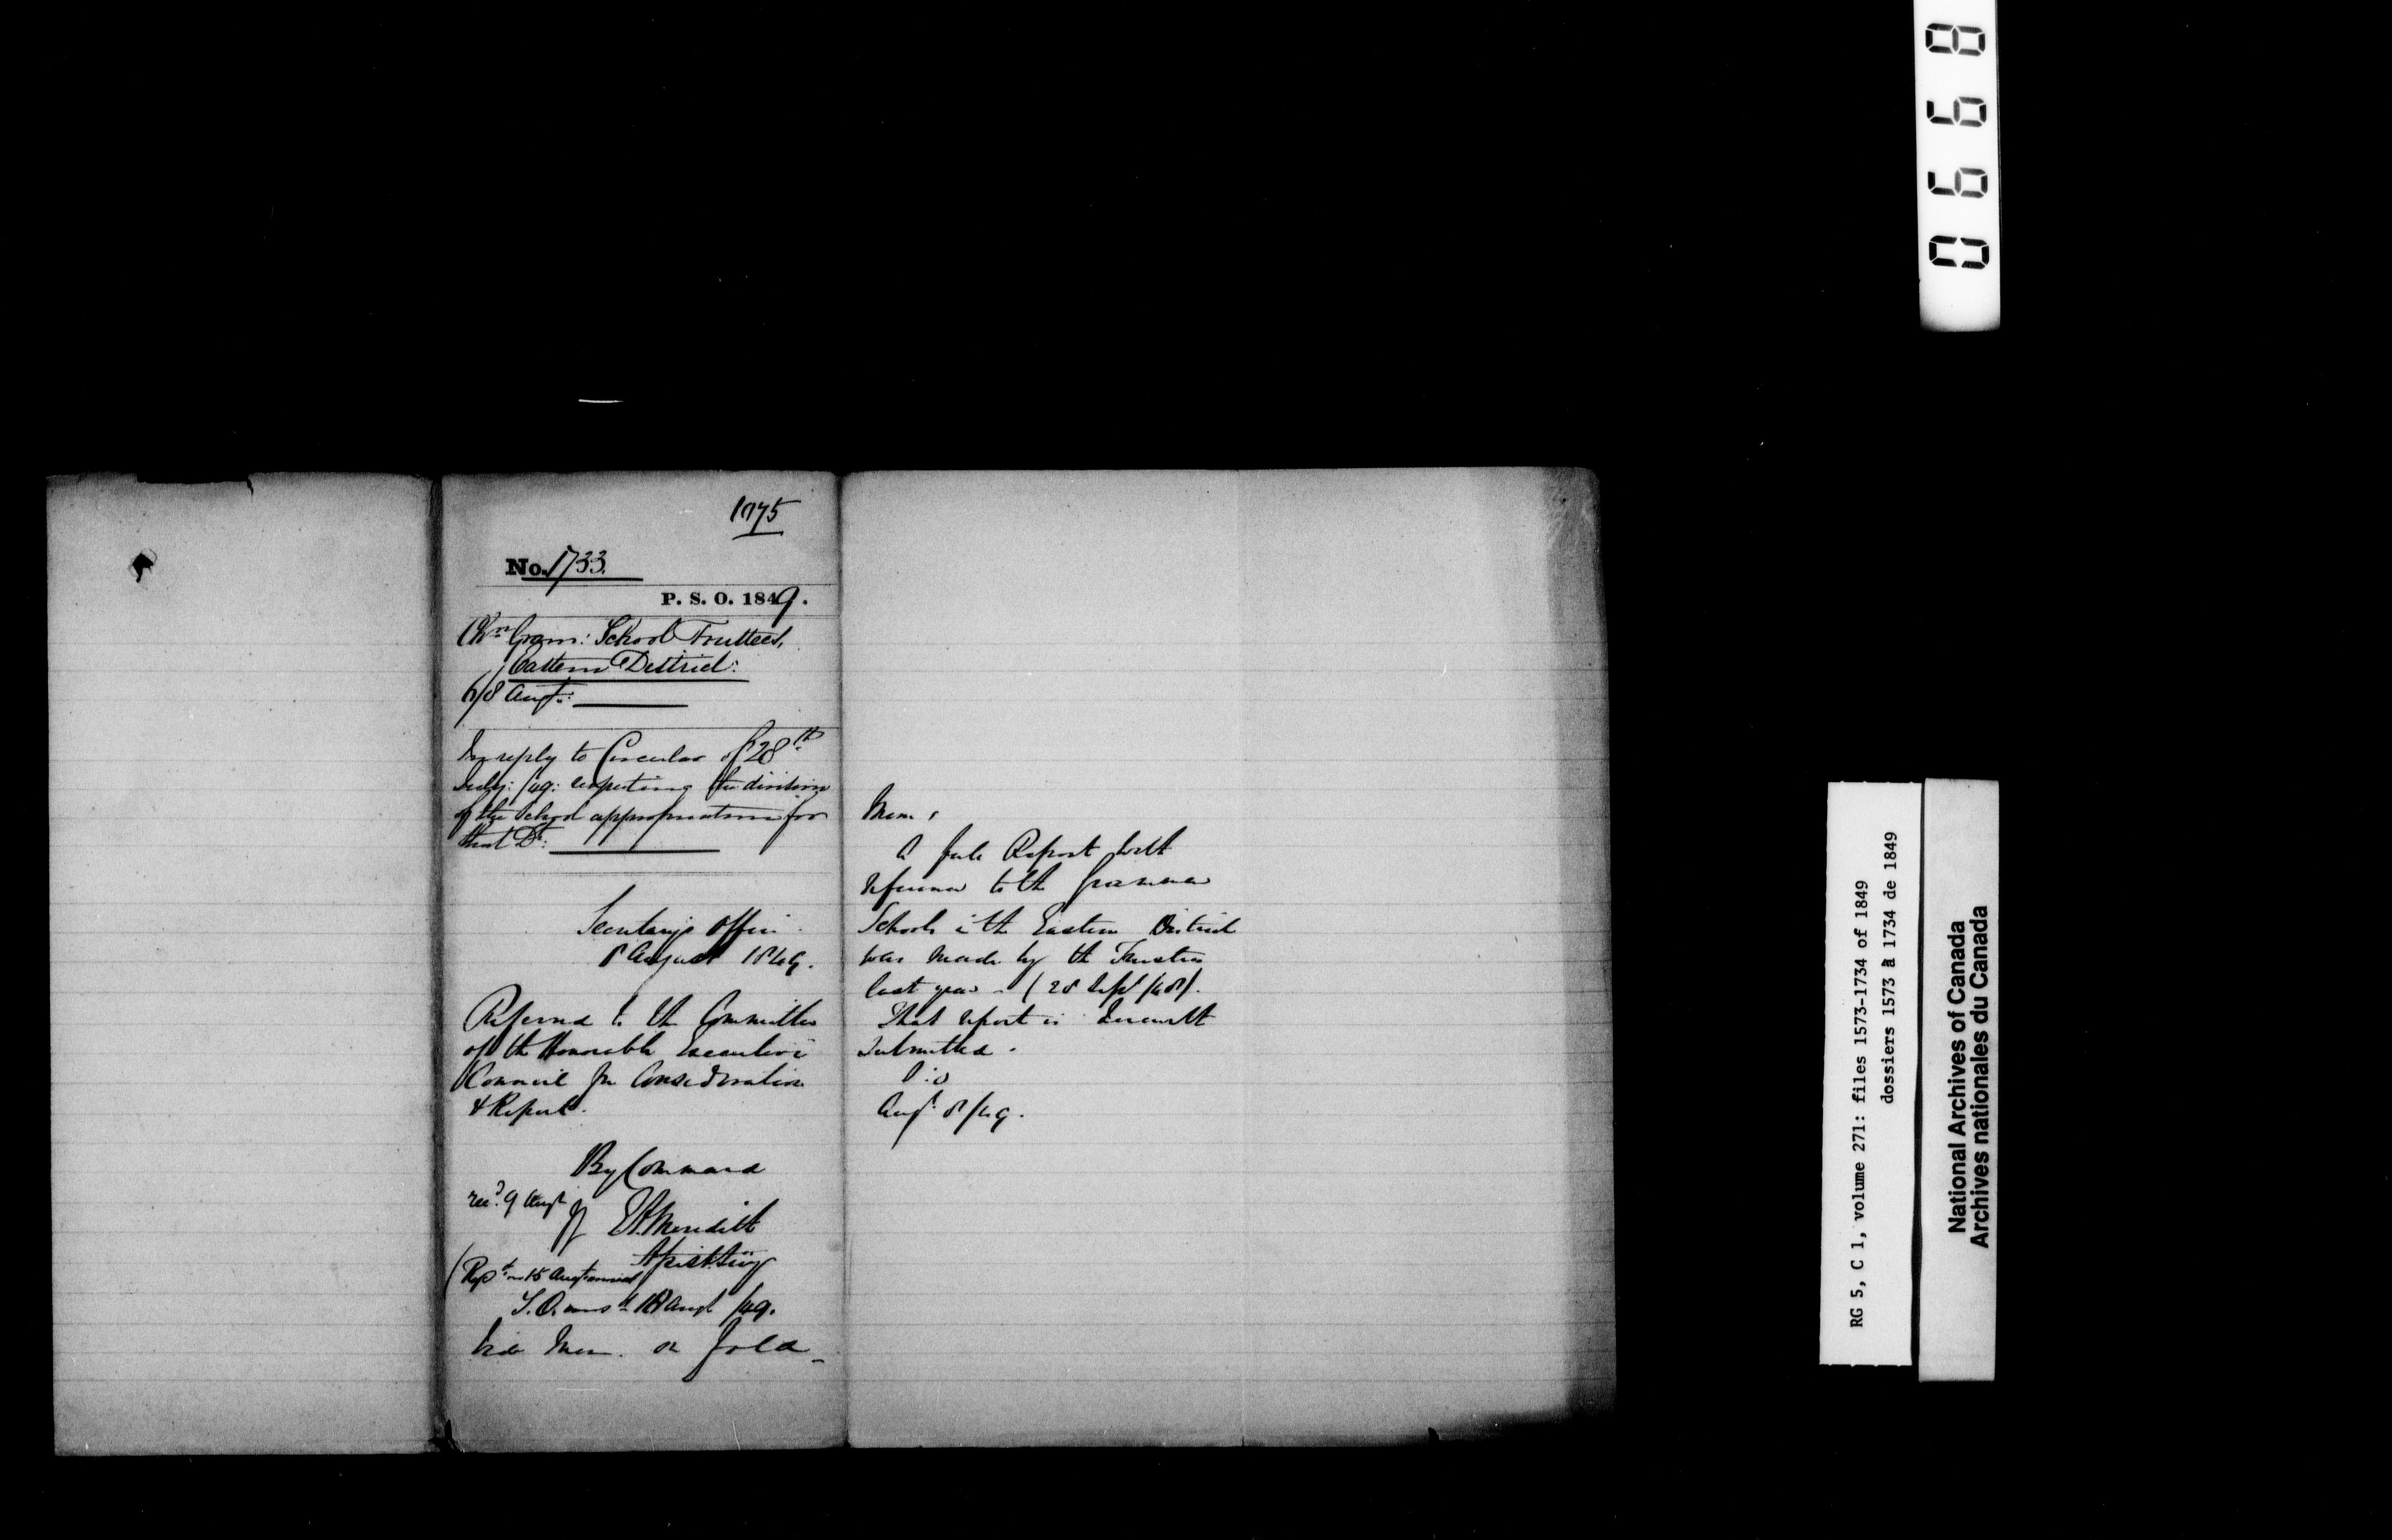 1775
No. 1733.
P. S. O. 1849.
Chn Gram: School Trustees,
Eastern District:
6/8 Augt:
In reply to Circular of 28th
July: /49: respecting the division
of the School appropriation for
that Dt:
Secretary's Office
8 August 1849.
Referred to the Committee
of the Honorable Executive
Council for Consideration
& Report.
By Command
recd. 9 Augt
E A Meredith
Asst. Secy
(Rept 15 Augt
18 Augt /49.
Vide Mem. on fold
Mem.
A full Report with
reference to the Grammar
Schools in the Eastern District
was made by the Trustees
last year - (28 Sept /48).
That report is herewith
submitted.
Augt 8/49.
0668
RG 5, C 1, volume 271: files 1573-1734 of 1849
dossiers 1573 à 1734 de 1849
National Archives of Canada
Archives nationales du Canada